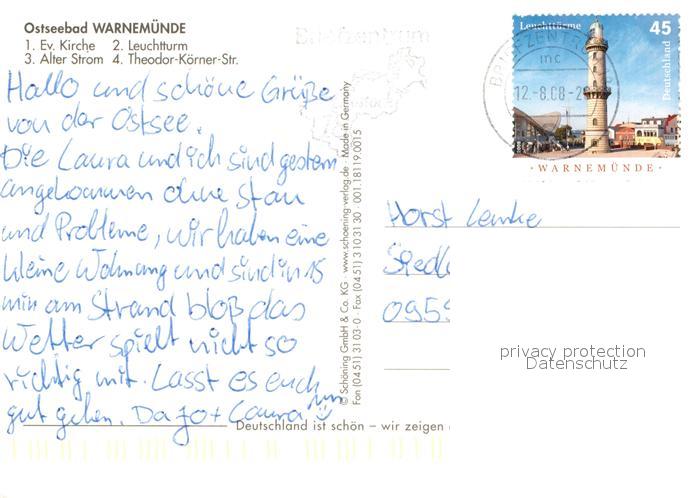 Ostseebad WARNEMÜNDE
1. Ev. Kirche 2. Leuchtturm
3. Alter Strom 4. Theodor-Körner-Str.
Hallo und schöne Grüße
von der Ostsee.
Die Laura und ich sind gestern
angekommen ohne Stau
und Probleme, wir haben eine
kleine Wohnung und sind in 15
min am Strand bloß das
Wetter spielt nicht so
richtig mit. Lasst es euch
gut gehen. Da Jo + Laura
Deutschland ist schön – wir zeigen
© Schöning GmbH & Co. KG · www.schoening-verlag.de · Made in Germany
Fon (04 51) 31 03-0 · Fax (04 51) 3 10 31 30 001.18119.0015
Briefzentrum
BRIEFZENTRUM
mc
12.-8.08-2
Leuchttürme
45
Deutschland
WARNEMÜNDE
Horst Lemke
0959
privacy protection
Datenschutz